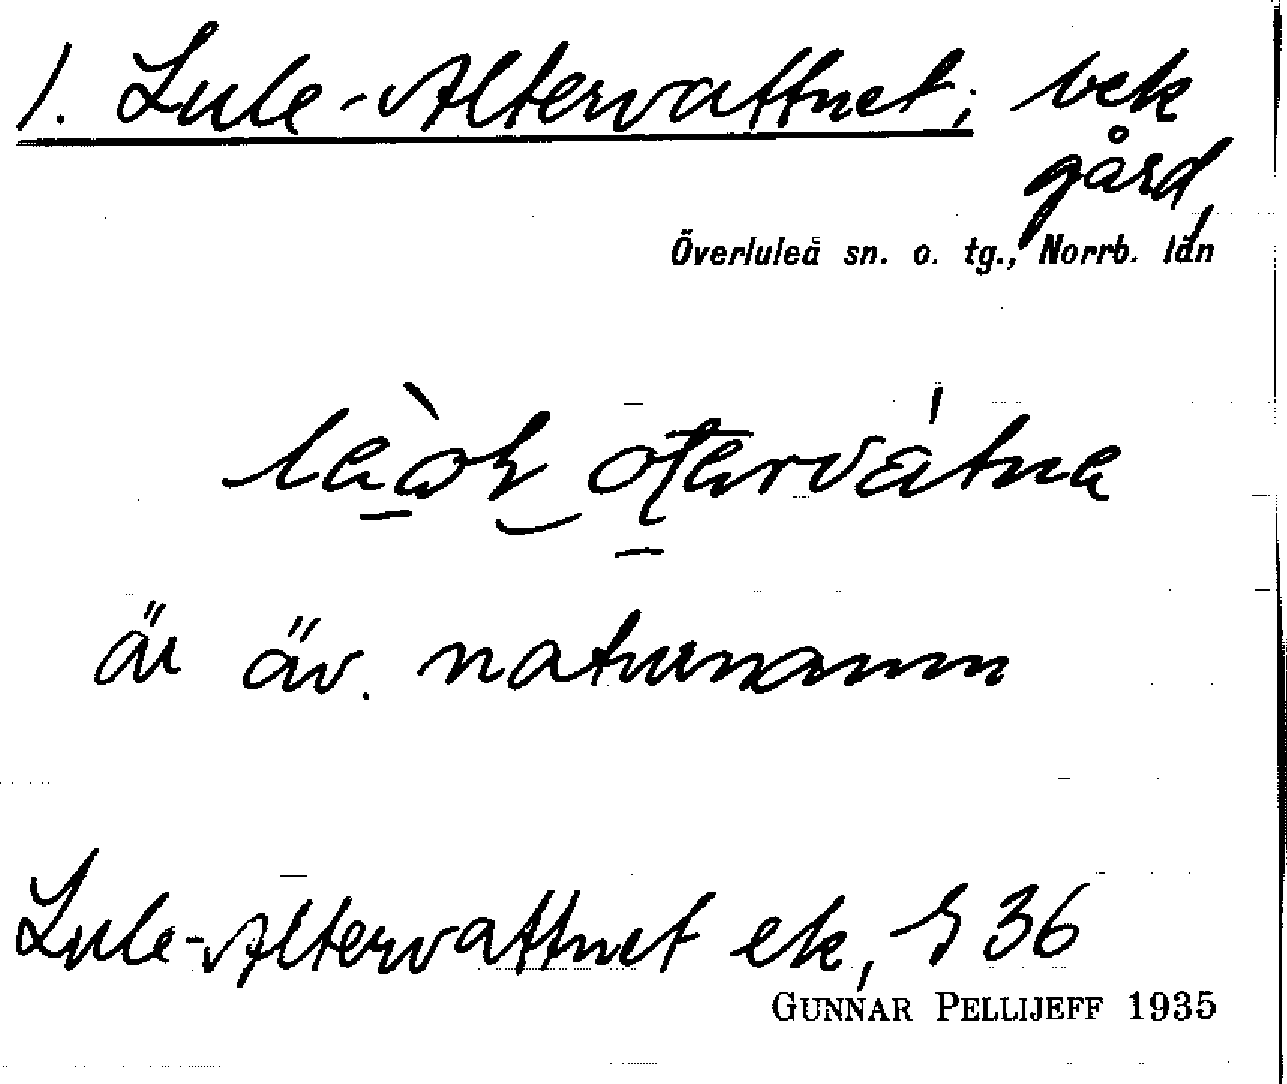 1. Lule-Altervattnet; bek
gård,
Överluleå sn. o. tg., Norrb. län
är äv. naturnamn
Lule-Altervattnet ek, 36
GUNNAR PELLIJEFF 1935